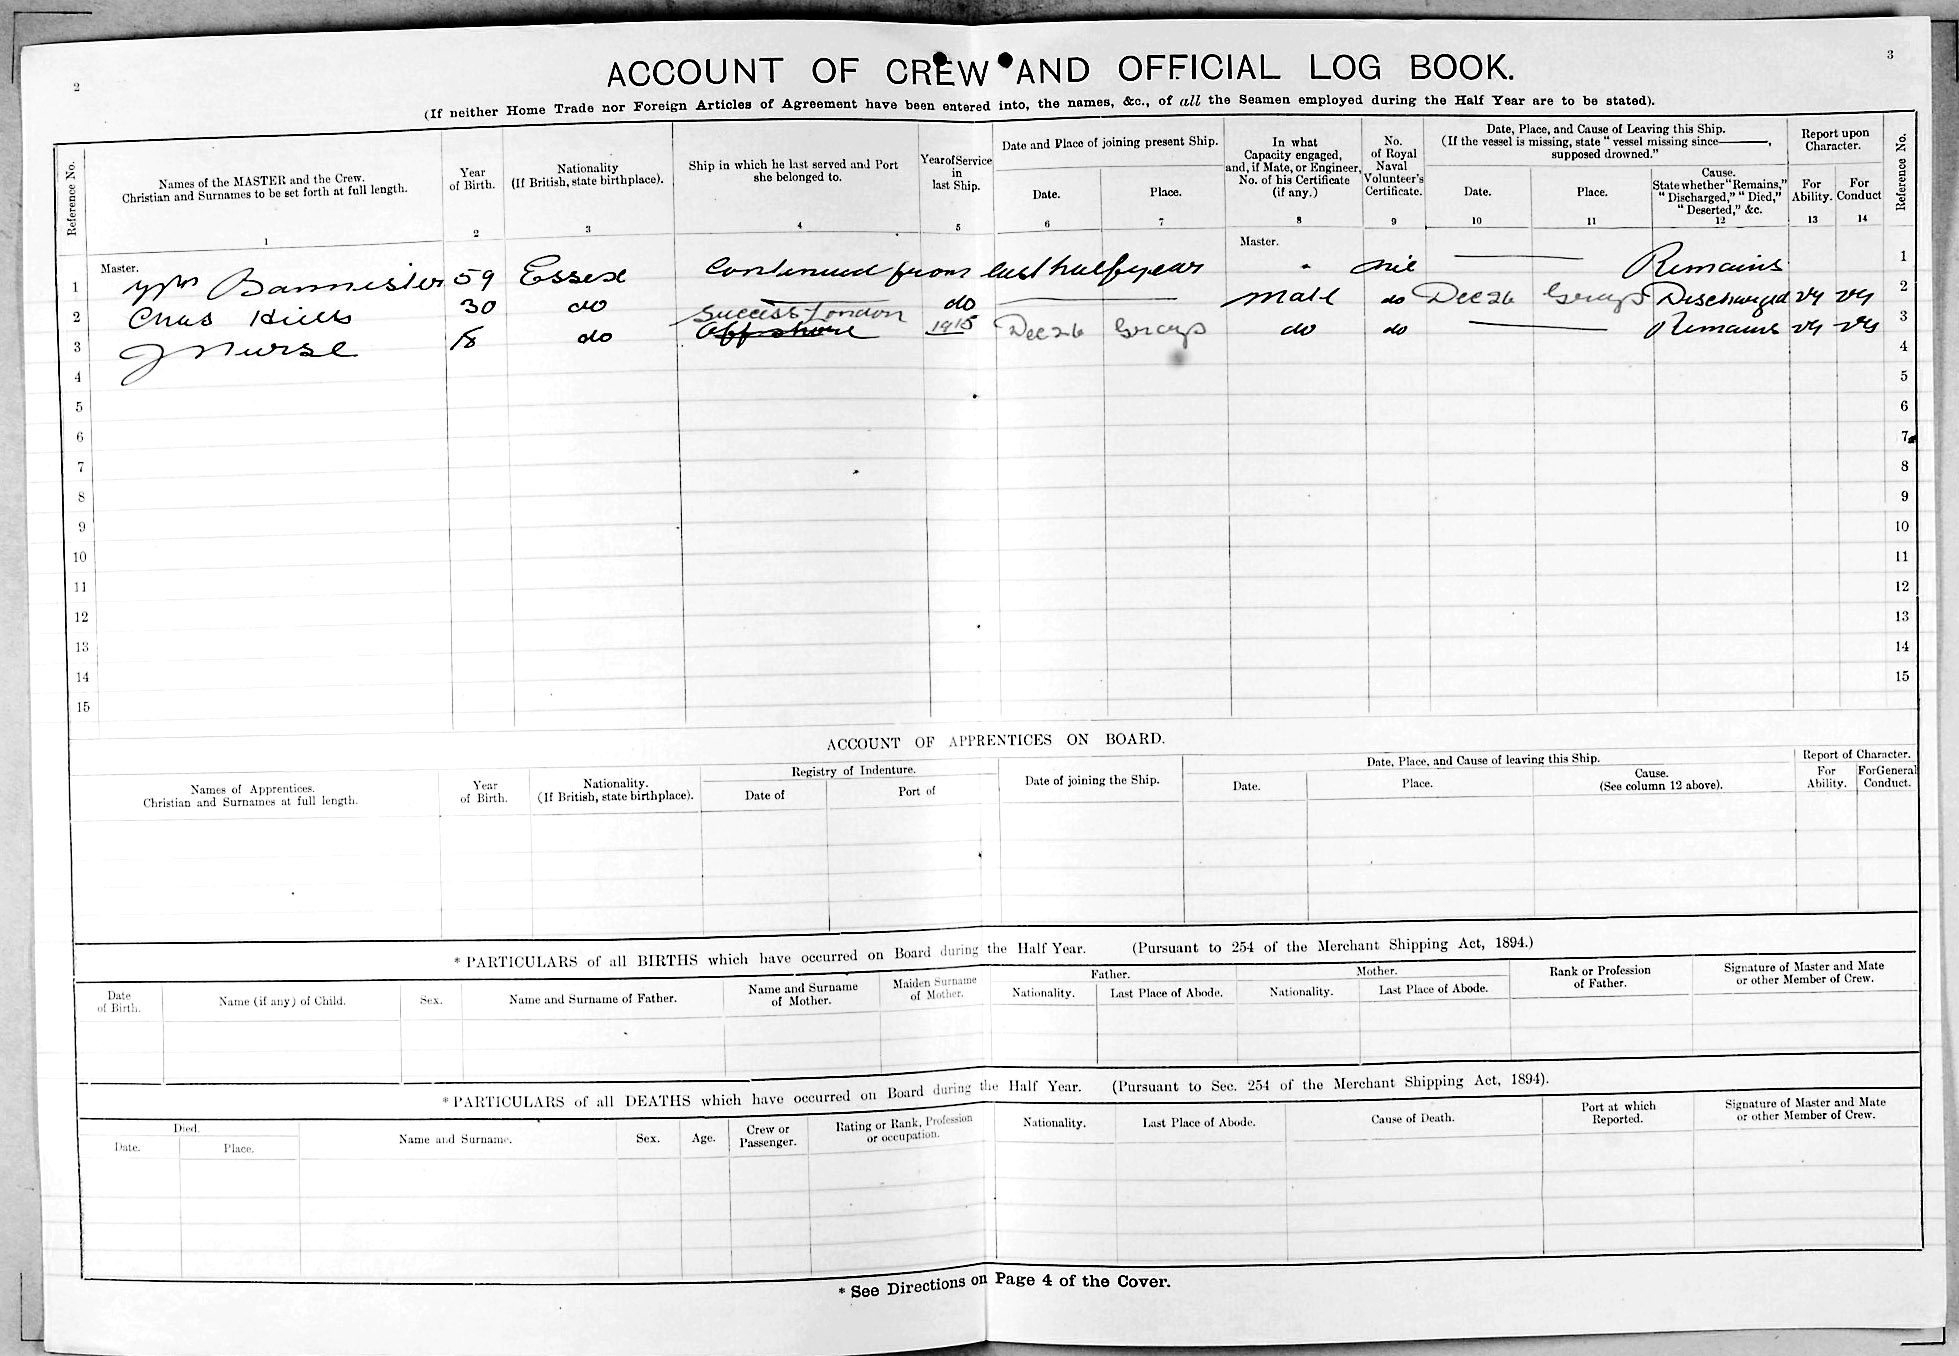 2
3
ACCOUNT OF CREW AND OFFICIAL LOG BOOK.
(If neither Home Trade nor Foreign Articles of Agreement have been entered into, the names, &c., of all the Seamen employed during the Half Year are to be stated).
Reference No.
Names of the MASTER and the Crew.
Christian and Surnames to be set forth at full length.
1
Year
of Birth.
2
Nationality
(If British, state birthplace).
3
Ship in which he last served and Port
she belonged to.
4
Year of Service
in
last Ship.
5
Date and Place of joining present Ship.
Date.
6
Place.
7
In what
Capacity engaged,
and, if Mate, or Engineer,
No. of his Certificate
(if any.)
8
No.
of Royal
Naval
Volunteer's
Certificate.
9
Date, Place, and Cause of Leaving this Ship.
(If the vessel is missing, state "vessel missing since———,
supposed drowned."
Date.
10
Place.
11
Cause.
State whether "Remains,"
"Discharged," "Died,"
"Deserted," &c.
12
Report upon
Character.
For
Ability.
13
For
Conduct
14
Reference No.
Master.
Master.
1 Wm Bannister 59 Essex Continued from last half year " nil Remains 1
2 Chas Hills 30 do do Mate do Dec 26 Grays Discharged VG VG 2
Success London
3 J Nurse 18 do Offshore 1915 Dec 26 Grays do do Remains VG VG 3
4 4
5 5
6 6
7 7
8 8
9 9
10 10
11 11
12 12
13 13
14 14
15 15
ACCOUNT OF APPRENTICES ON BOARD.
Names of Apprentices.
Christian and Surnames at full length.
Year
of Birth.
Nationality.
(If British, state birthplace).
Registry of Indenture.
Date of
Port of
Date of joining the Ship.
Date, Place, and Cause of leaving this Ship.
Date.
Place.
Cause.
(See column 12 above).
Report of Character.
For
Ability.
For General
Conduct.
* PARTICULARS of all BIRTHS which have occurred on Board during the Half Year. (Pursuant to 254 of the Merchant Shipping Act, 1894.)
Date
of Birth.
Name (if any) of Child.
Sex.
Name and Surname of Father.
Name and Surname
of Mother.
Maiden Surname
of Mother.
Father.
Nationality.
Last Place of Abode.
Mother.
Nationality.
Last Place of Abode.
Rank or Profession
of Father.
Signature of Master and Mate
or other Member of Crew.
* PARTICULARS of all DEATHS which have occurred on Board during the Half Year. (Pursuant to Sec. 254 of the Merchant Shipping Act, 1894).
Died.
Date.
Place.
Name and Surname.
Sex.
Age.
Crew or
Passenger.
Rating or Rank, Profession
or occupation.
Nationality.
Last Place of Abode.
Cause of Death.
Port at which
Reported.
Signature of Master and Mate
or other Member of Crew.
* See Directions on Page 4 of the Cover.